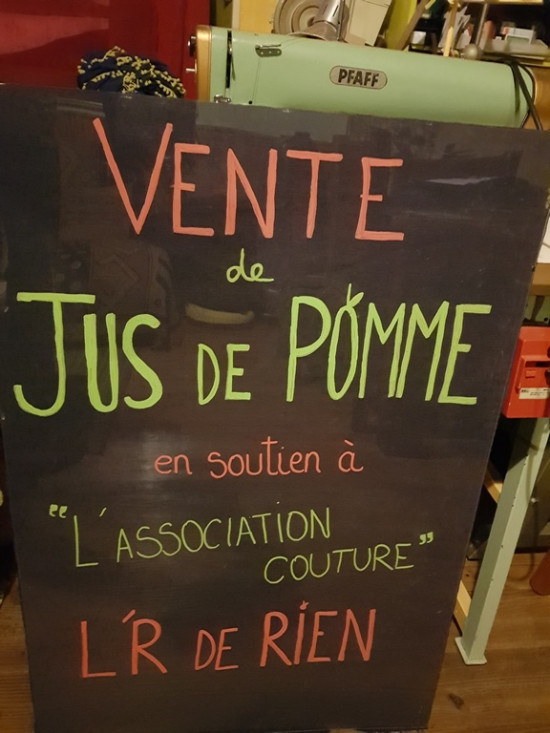 PFAFF
VENTE
de
JUS DE POMME
en soutien à
"L'ASSOCIATION
COUTURE"
L'R DE RIEN